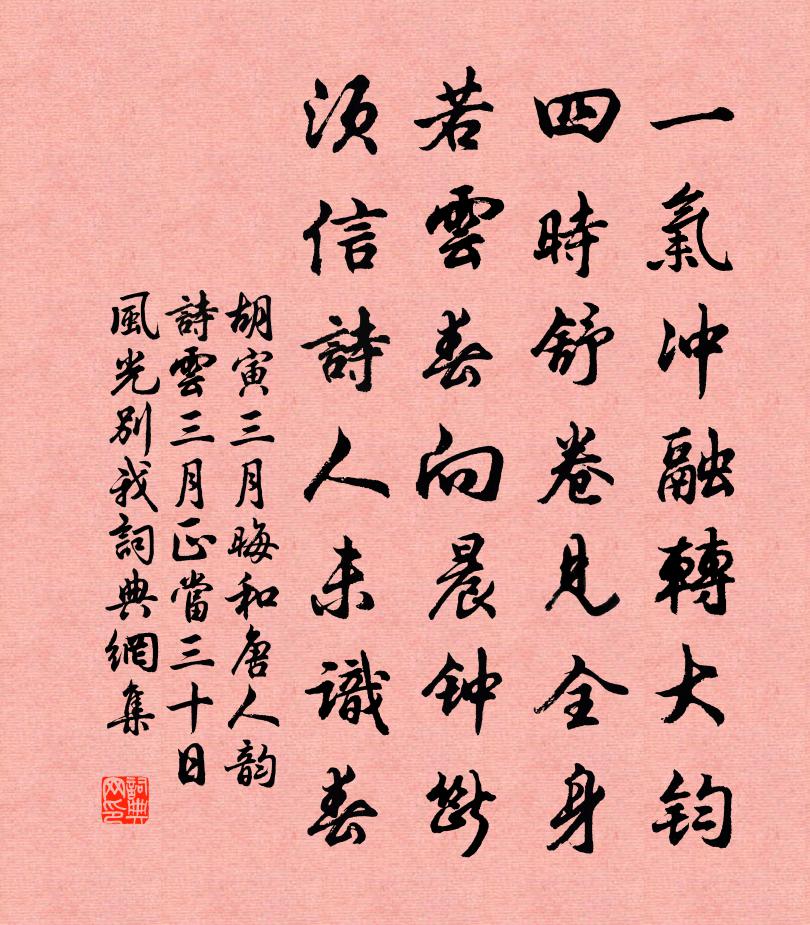 一氣冲融轉大鈞
四時舒卷見全身
若雲春向晨钟斷
須信詩人未識春
胡寅三月晦和唐人韵
詩雲三月正當三十日
風光别我詞典網集
詞典網印